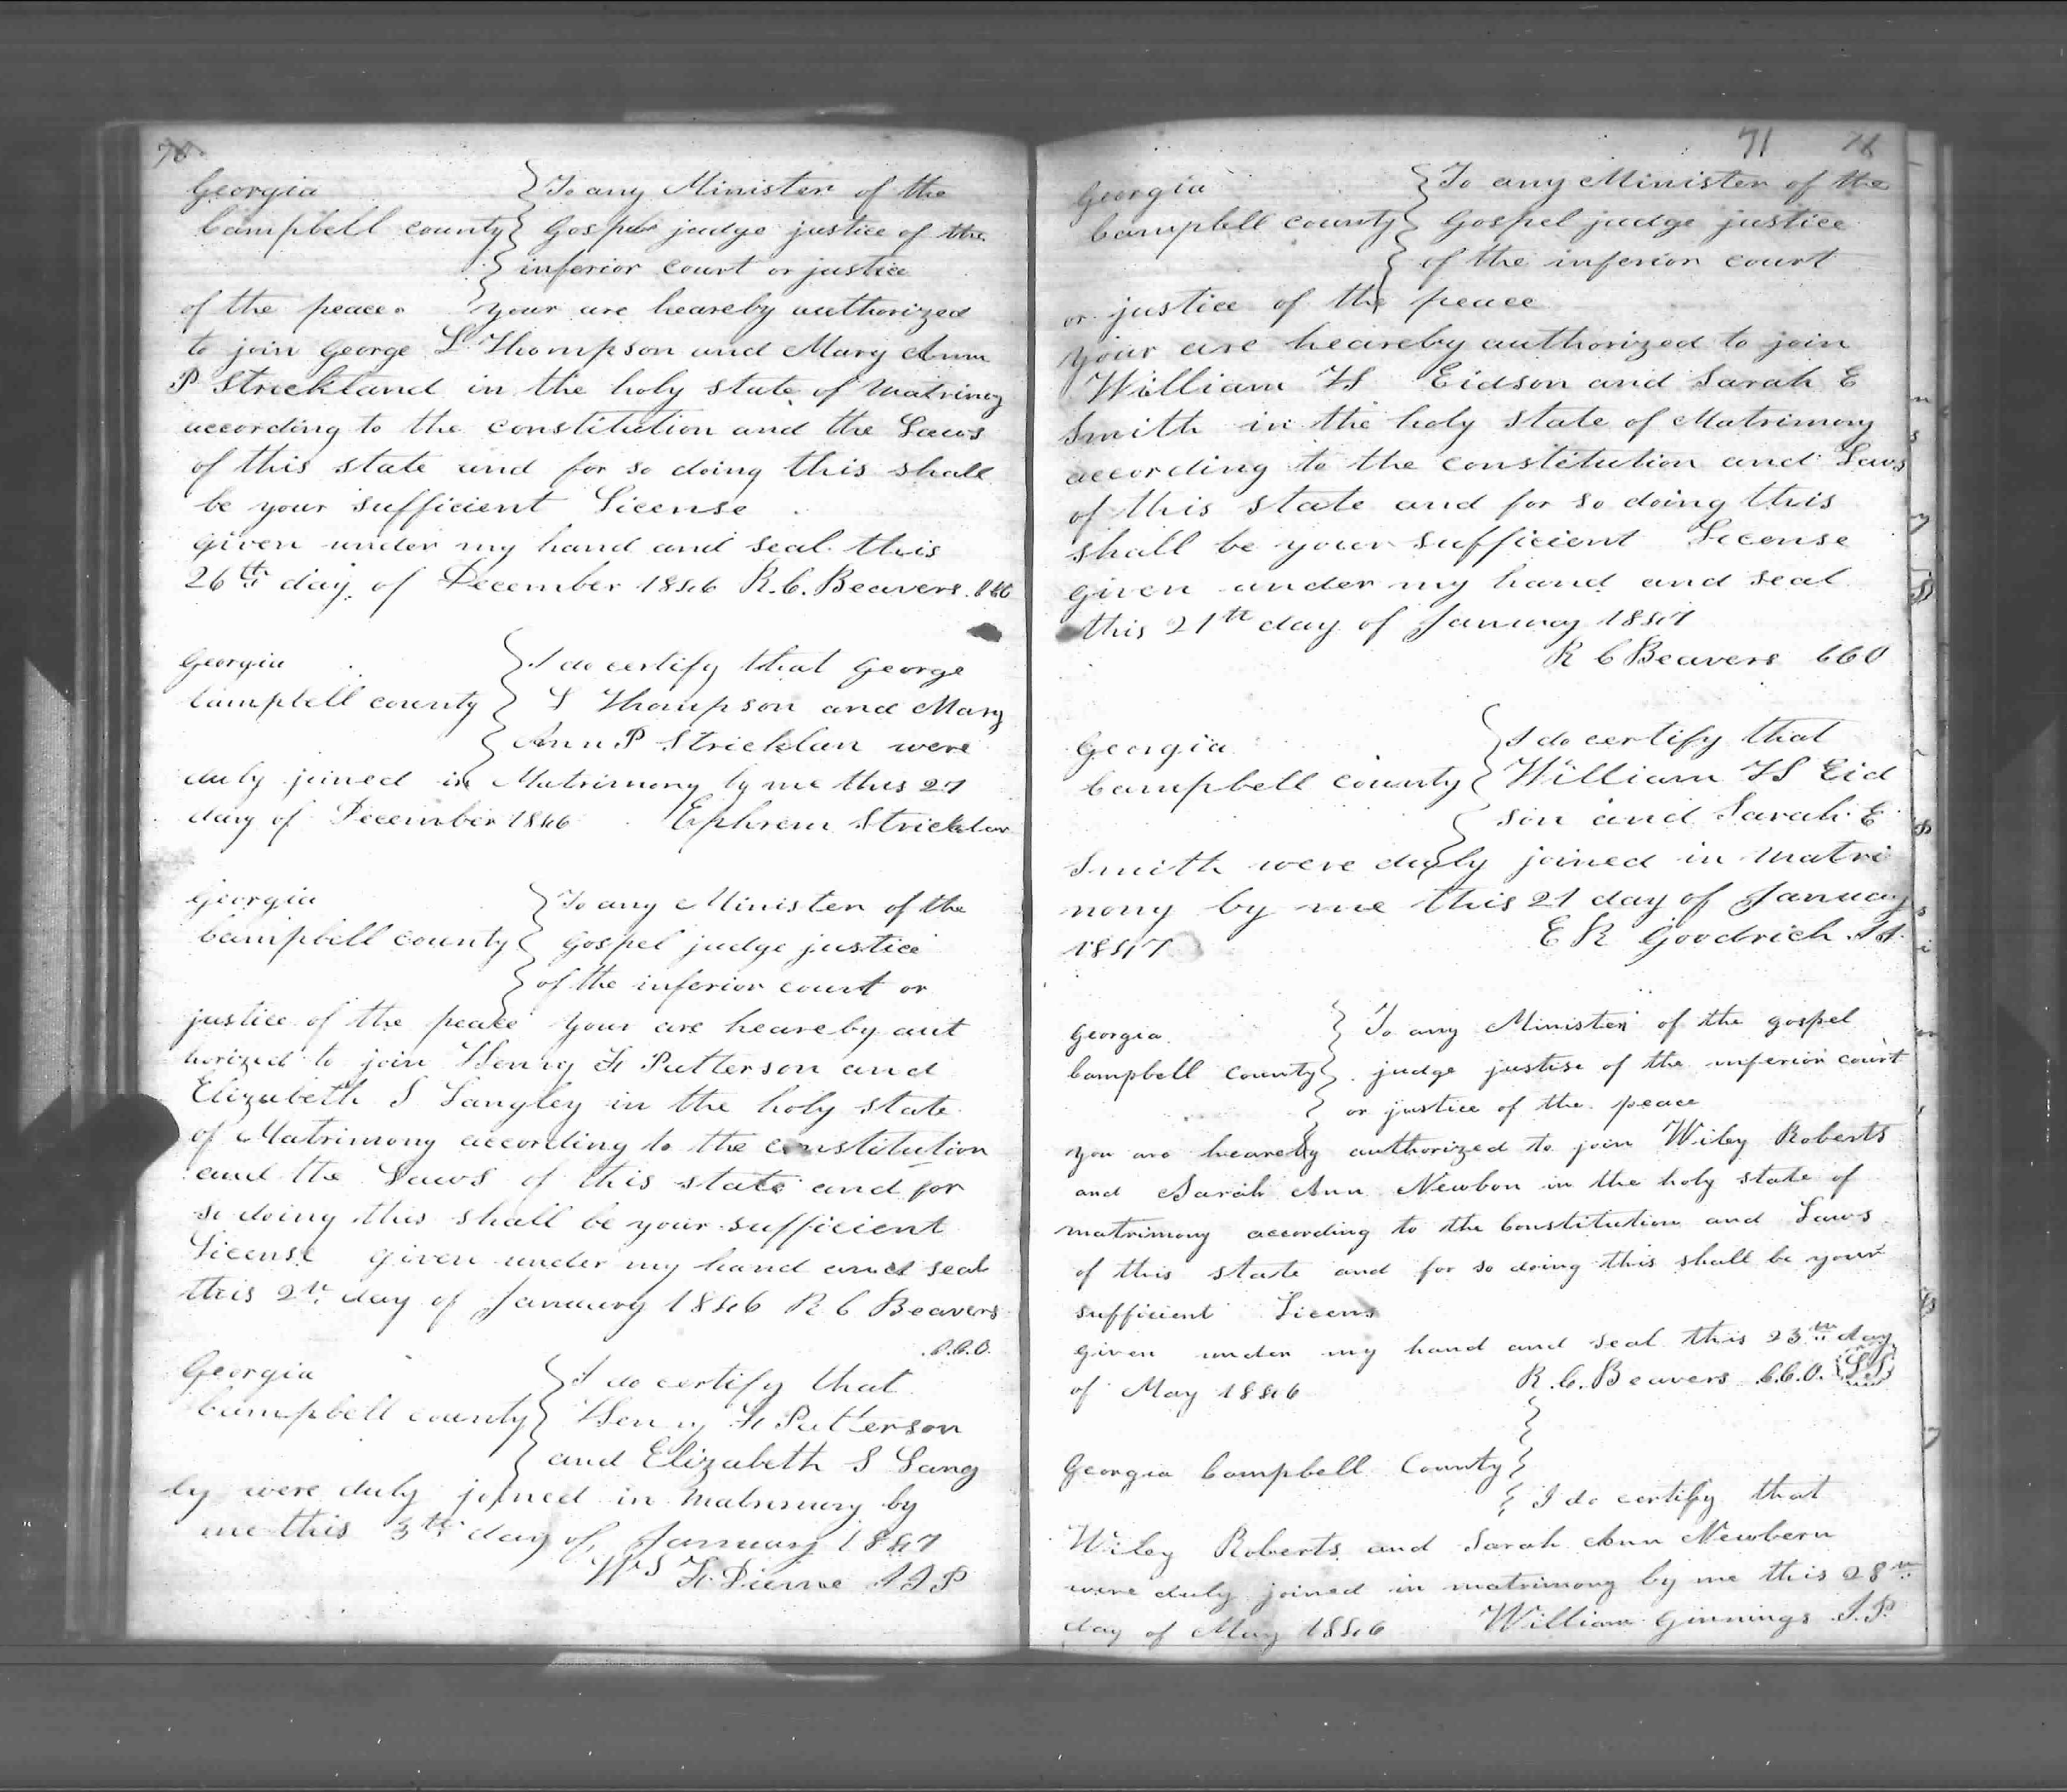 70
Georgia } To any Minister of the
Campbell county } Gospel judge justice of the
} inferior court or justice
of the peace. your are heareby authorized
to join George L Thompson and Mary Ann
P Strickland in the holy state of Matrimoy
according to the constitution and the Laws
of this state and for so doing this shall
be your sufficient License
given under my hand and seal this
26th day of December 1846 R. C. Beavers. CCO
Georgia } I do certify that George
Campbell county } L Thompson and Mary
} Ann P Stricklan were
duly joined in Matrimony by me this 27
day of December 1846 Ephrem Stricklan
Georgia } To any Minister of the
Campbell county } Gospel judge justice
} of the inferior court or
justice of the peace your are heareby aut
horized to join Henry F Patterson and
Elizabeth S Langley in the holy state
of Matrimony according to the constitution
and the Laws of this state and for
so doing this shall be your sufficient
License given under my hand and seal
this 2th day of January 1846 R C Beavers
C.C.O.
Georgia } I do certify that
Campbell county } Henry F Patterson
} and Elizabeth S Lang
ly were duly joined in Matrimony by
me this 3th day of January 1847
Wm F. J.J.P
71 71
Georgia } To any Minister of the
Campbell county } Gospel judge justice
} of the inferior court
or justice of the peace
your are heareby authorized to join
William H S Eidson and Sarah E
Smith in the holy state of Matrimony
according to the constitution and Laws
of this state and for so doing this
shall be your sufficient License
given under my hand and seal
this 21th day of January 1847
R C Beavers CCO
Georgia } I do certify that
Campbell county } William H S Eid
} son and Sarah E
Smith were duly joined in Matri
mony by me this 21 day of January
1847 E R Goodrich
Georgia } To any Minister of the gospel
Campbell County } judge justise of the inferior court
} or justice of the peace
you are heareby authorized to join Wiley Roberts
and Sarah Ann Newbon in the holy state of
matrimony according to the Constitution and Laws
of this state and for so doing this shall be your
sufficient Licens
given under my hand and seal this 23th day
of May 1846 R. C. Beavers C.C.O. L.S
Georgia Campbell County }
} I do certify that
Wiley Roberts and Sarah Ann Newbern
were duly joined in matrimony by me this 28th
day of May 1846 William Ginnings J.P.